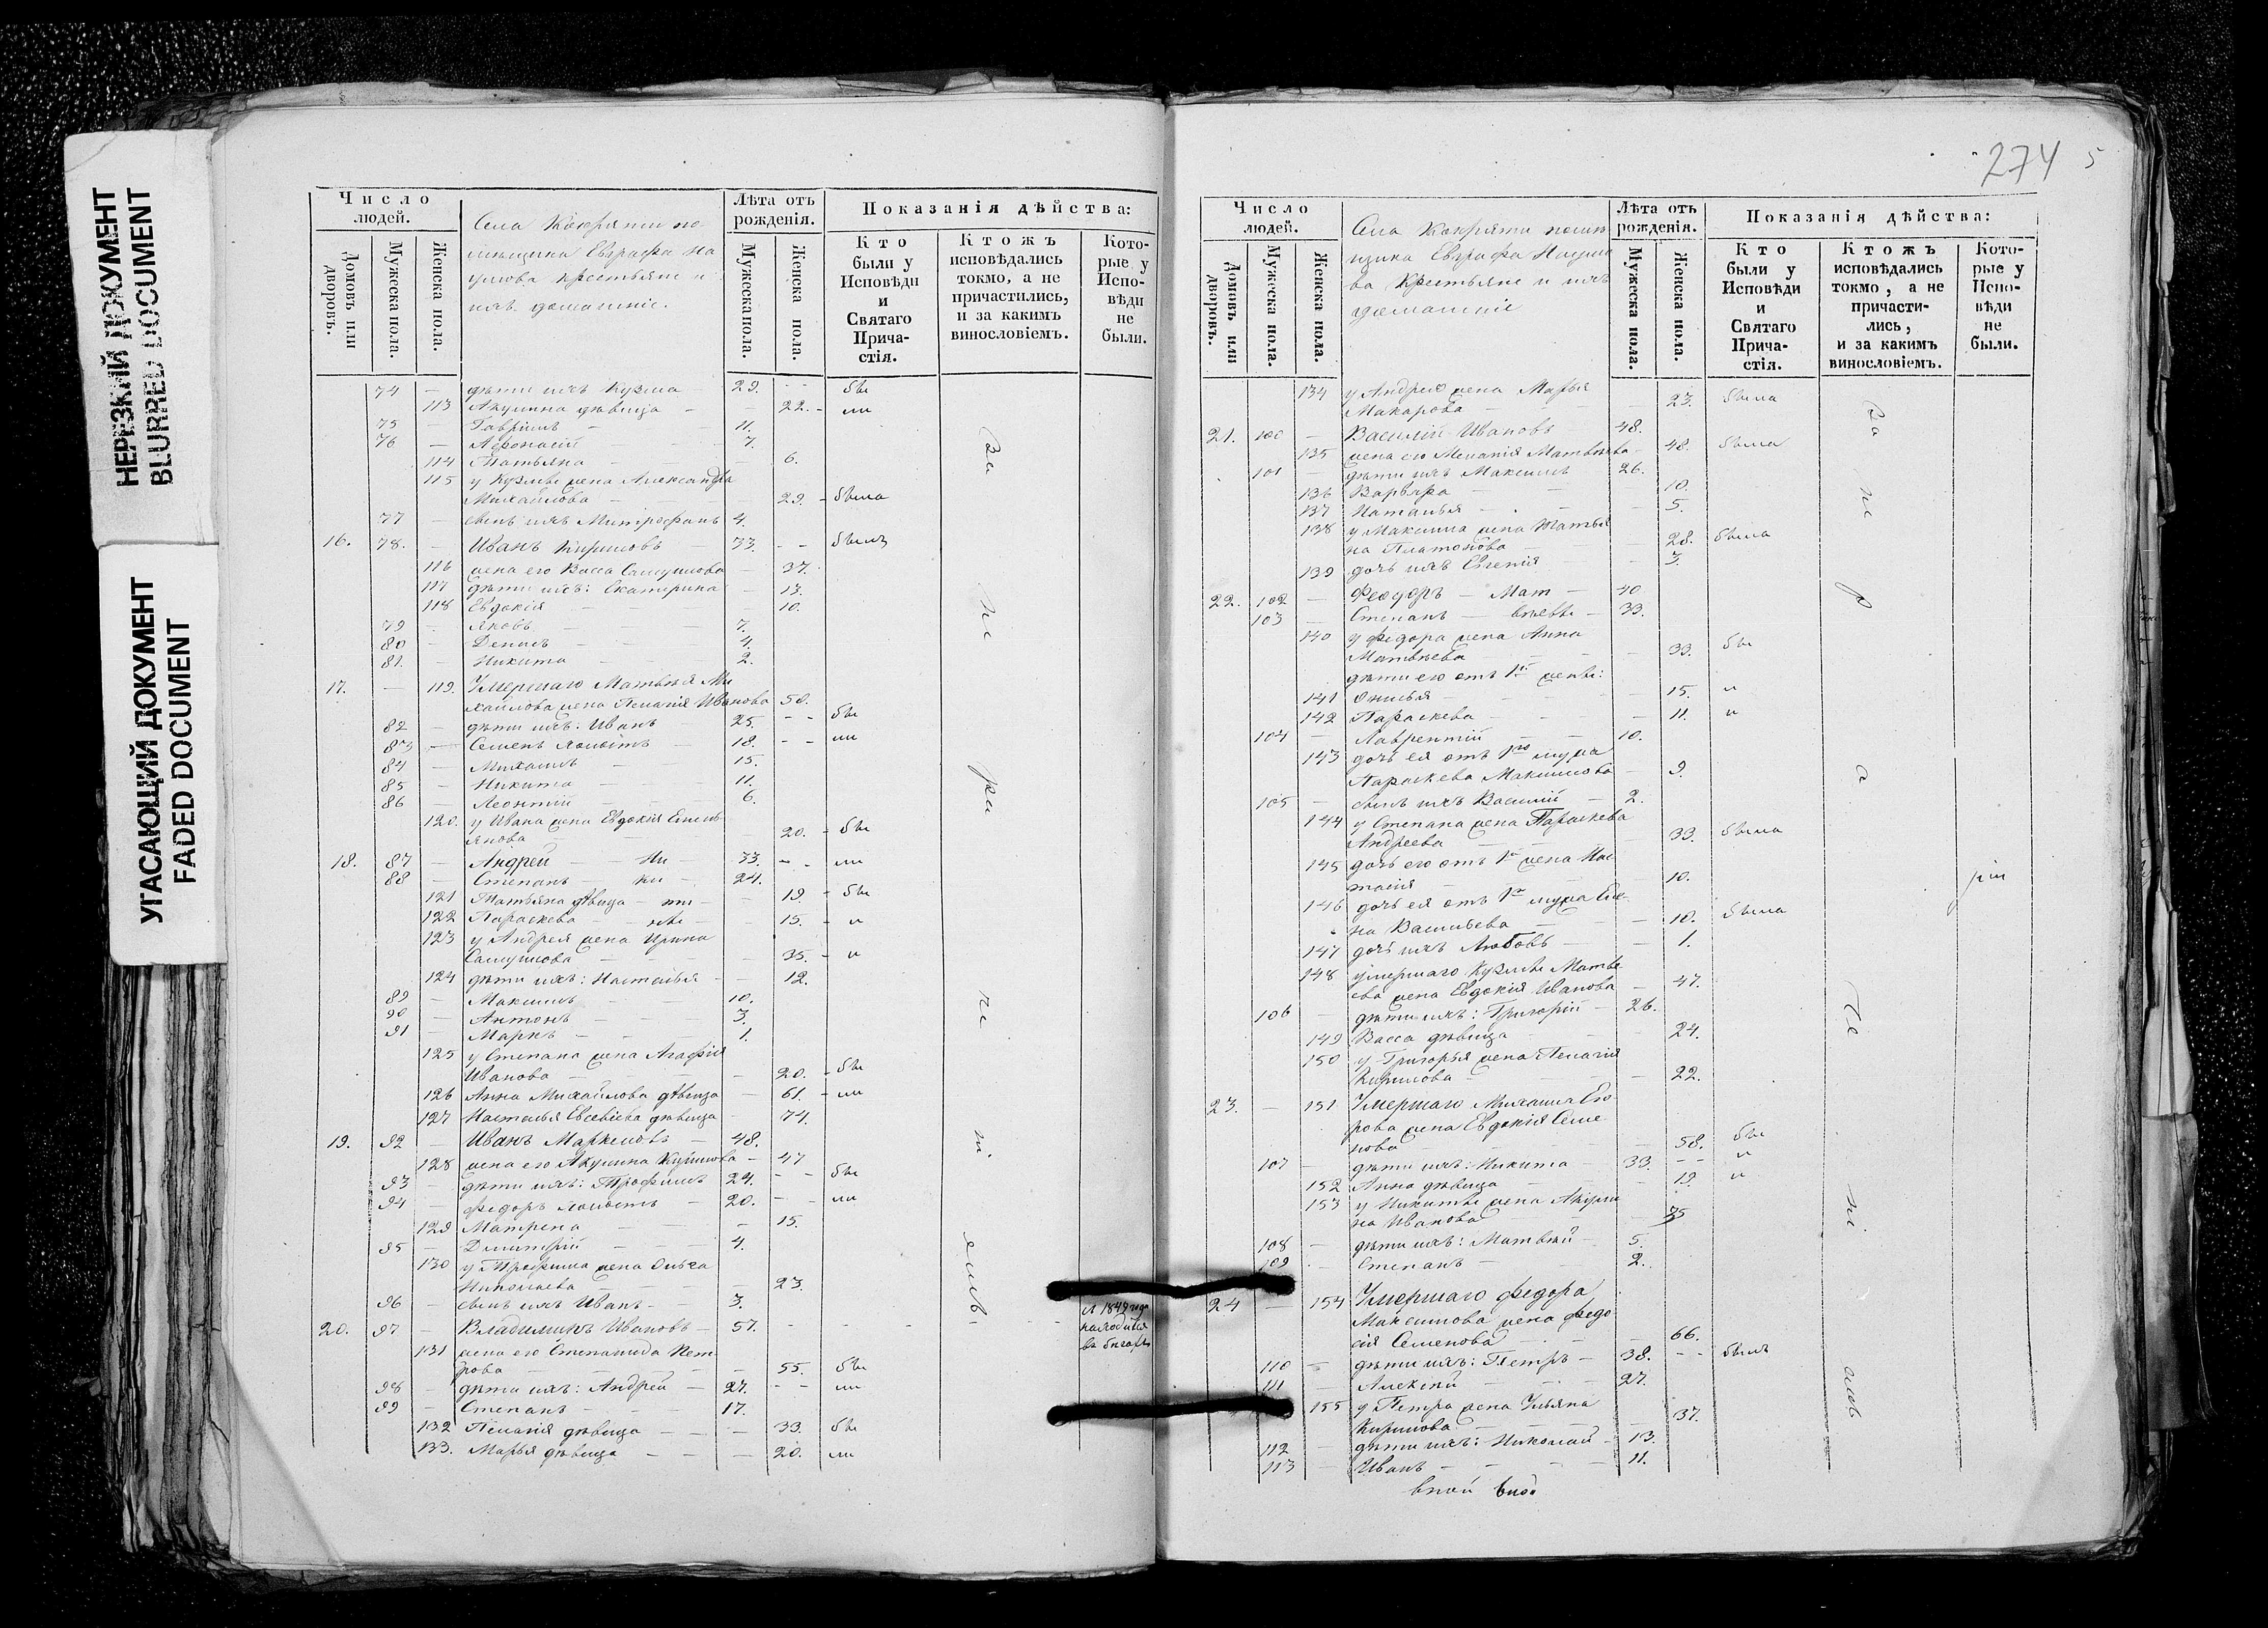 НЕРЕЗКИЙ ДОКУМЕНТ
BLURRED DOCUMENT
УГАСАЮЩИЙ ДОКУМЕНТ
FADED DOCUMENT
Число людей.
Домовъ или дворовъ.
Мужеска пола.
Женска пола.
Села Кокряти по-
мѣщика Евграфа На
умова крестьяне и
ихъ домашніе.
Лѣта отъ рожденія.
Мужеска пола.
Женска пола.
Показанія дѣйства:
Кто были у Исповѣди и Святаго Прича-стія.
Ктожъ исповѣдались токмо, а не причастились, и за какимъ винословіемъ.
Кото-рые у Испо-вѣди не были.
74 — дѣти ихъ Кузма 29. - - бы
113 Акулина дѣвица - - 22. - ли
75 — Гаврiилъ - 11.
76 — Афонасій - 7.
114 Татьяна - - 6.
115 у Кузмы жена Александра
Михайлова - 29. - была
77 — сынъ ихъ Митрофанъ 4.
16. 78. - Иванъ Кириловъ - 33. - - былъ
116 жена его Васса Самуилова - 37.
117 дѣти ихъ: Екатерина - 13.
118 Евдокія - 10.
79 - Яковъ - 7.
80 - Денисъ - 4.
81. - Никита - 2.
17. — 119. Умершаго Матвѣя Ми
хайлова жена Пелагія Иванова 50.
82 - дѣти ихъ: Иванъ 25. - - бы
83 — Семенъ холостъ - 18. - - ли
84 - Михаилъ 15.
85 - Никита - 11.
86 - Леонтій 6.
120. у Ивана жена Евдокія Емель
янова - 20. - бы
18. 87 - Андрей — Ни - 33. - - ли
88 - Степанъ - ки - 24.
121 Татьяна дѣвица - ти - 19 - бы
122 Параскева - - ны - 15. - и
123 у Андрея жена Ирина
Самуилова - 35. - и
124 дѣти ихъ: Наталья - - 12.
89 - Максимъ - 10.
90 - Антонъ - - 3.
91 - Маркъ - - 1.
125 у Степана жена Агафія
Иванова - - 20. - бы
126 Анна Михайлова дѣвица - 61. - ли
127 Наталья Евсевіева дѣвица - 74.
19. 92 - Иванъ Маркеловъ - 48.
128 жена его Акулина Кирилова - 47
93 - дѣти ихъ: Трофимъ 24. - - бы
94 - Федоръ холостъ - 20. - - ли
129 Матрена - - 15.
95 - Дмитрій - - 4.
130 у Трофима жена Ольга
Николаева - - 23.
96 - сынъ ихъ Иванъ - 3.
20. 97 - Владимиръ Ивановъ - 57. - - - - съ 1849 года находится въ бѣгахъ
131 жена его Степанида Пет-
рова - - 55. бы
98 - дѣти ихъ: Андрей - 27. - - ли
99 - Степанъ - - 17.
132 Пелагія дѣвица - - 33. бы
133. Марья дѣвица - - 20. ли
274
5
Число людей.
Домовъ или дворовъ.
Мужеска пола.
Женска пола.
Села Кокряти помѣ
щика Евграфа Наумо
ва Крестьяне и ихъ
домашніе
Лѣта отъ рожденія.
Мужеска пола.
Женска пола.
Показанія дѣйства:
Кто были у Исповѣди и Святаго Прича-стія.
Ктожъ исповѣдались токмо, а не причасти-лись, и за какимъ винословіемъ.
Кото-рые у Испо-вѣди не были.
134 у Андрея жена Марья
Макарова - - 23. была
21. 100 - Василій Ивановъ 48.
135 жена его Меланія Матвѣева - 48. была
101 - дѣти ихъ Максимъ 26.
136 Варвара - - 10.
137 Наталья - - 5.
138 у Максима жена Татья
на Платонова - 28. была
139 дочь ихъ Евгенія - 3.
22. 102 - Феодоръ - Мат - 40
103 - Степанъ - вѣевы - 33.
140 у Федора жена Анна
Матвѣева - - 33. бы
дѣти его отъ 1й жены:
141 Онисья - - 15. и
142 Параскева - - 11. и
104 - Лаврентій - - 10.
143 дочь ея отъ 1го мужа
Параскева Максимова - 9.
105 - сынъ ихъ Василій - 2.
144 у Степана жена Параскева
Андреева - 33. была
145 дочь его отъ 1й жена Нас
тасія - - 10.
146 дочь ея отъ 1го мужа Еле-
на Васильева - - 18. была
147 дочь ихъ Любовь - - 1.
148 умершаго Кузмы Матвѣ
ева жена Евдокія Иванова - 47.
106 - дѣти ихъ: Григорій - 26.
149 Васса дѣвица - - 24.
150 у Григорья жена Пелагія
Кирилова - - 22.
23. - 151 Умершаго Михаила Его
рова жена Евдокія Семе
нова - - 58. бы
107 - дѣти ихъ: Никита - 33. - - и
152 Анна дѣвица - - 19. и
153 у Никиты жена Акули
на Иванова - 35
108 - дѣти ихъ: Матвѣй - 5.
109 - Степанъ - - 2.
24 — 154 Умершаго Федора
Максимова жена Федо
сія Семенова - - 66.
110 - дѣти ихъ: Петръ - 38. - - былъ
111 - Алексѣй - - 27.
155 у Петра жена Ульяна
Кирилова - - 37.
112 - дѣти ихъ: Николай - 13.
113 - Иванъ - - 11.